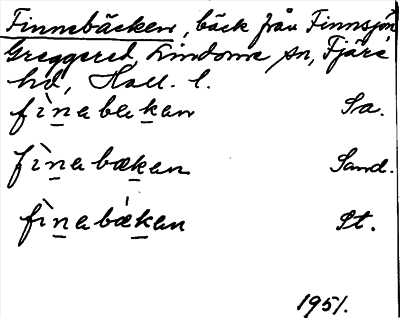 Finnebäcken, bäck från Finnsjön
Greggered, Lindome sn, Fjäre
hd, Hall. l.
fìnabekan Sa.
fìnabækan Sand.
fìnabækan St.
1951.